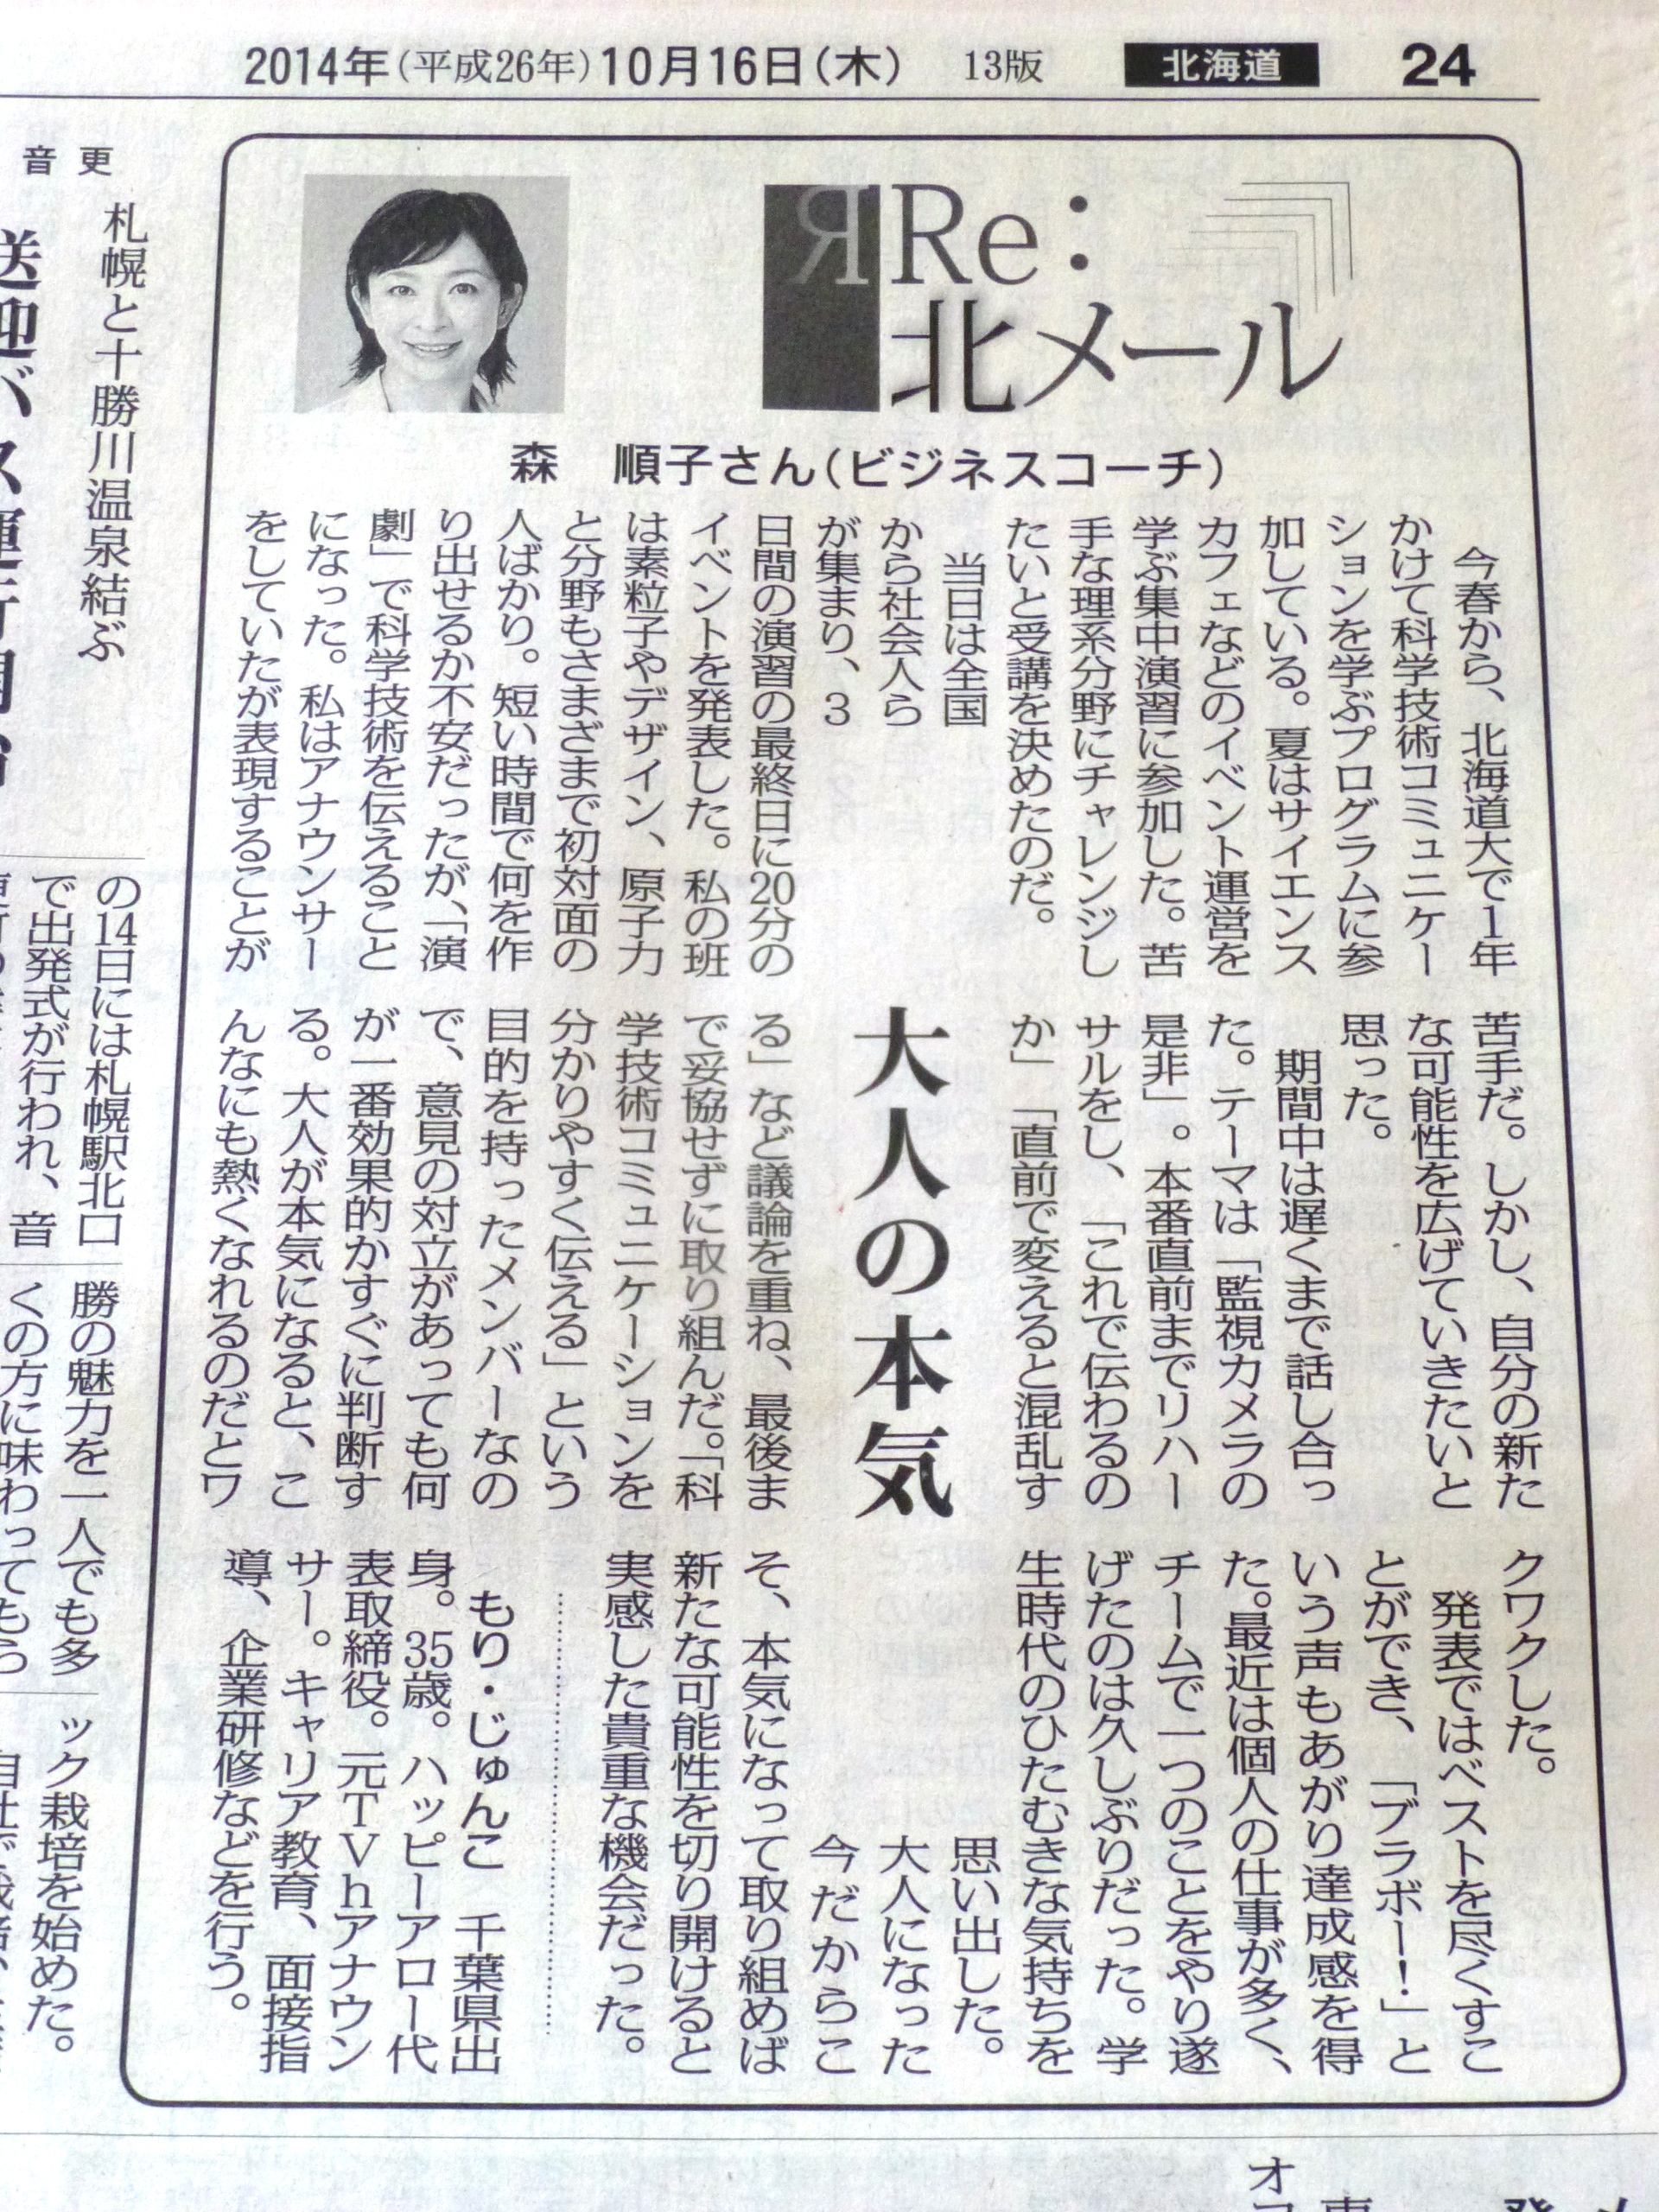 2014年(平成26年)10月16日(木) 13版 北海道 24
Re:
北メール
森 順子さん(ビジネスコーチ)
今春から、北海道大で1年
かけて科学技術コミュニケー
ションを学ぶプログラムに参
加している。夏はサイエンス
カフェなどのイベント運営を
学ぶ集中演習に参加した。苦
手な理系分野にチャレンジし
たいと受講を決めたのだ。
当日は全国
から社会人ら
が集まり、3
日間の演習の最終日に20分の
イベントを発表した。私の班
は素粒子やデザイン、原子力
と分野もさまざまで初対面の
人ばかり。短い時間で何を作
り出せるか不安だったが、「演
劇」で科学技術を伝えること
になった。私はアナウンサー
をしていたが表現することが
大人の本気
苦手だ。しかし、自分の新た
な可能性を広げていきたいと
思った。
期間中は遅くまで話し合っ
た。テーマは「監視カメラの
是非」。本番直前までリハー
サルをし、「これで伝わるの
か」「直前で変えると混乱す
る」など議論を重ね、最後ま
で妥協せずに取り組んだ。「科
学技術コミュニケーションを
分かりやすく伝える」という
目的を持ったメンバーなの
で、意見の対立があっても何
が一番効果的かすぐに判断す
る。大人が本気になると、こ
んなにも熱くなれるのだとワ
クワクした。
発表ではベストを尽くすこ
とができ、「ブラボー!」と
いう声もあがり達成感を得
た。最近は個人の仕事が多く、
チームで一つのことをやり遂
げたのは久しぶりだった。学
生時代のひたむきな気持ちを
思い出した。
大人になった
今だからこ
そ、本気になって取り組めば
新たな可能性を切り開けると
実感した貴重な機会だった。
もり・じゅんこ 千葉県出
身。35歳。ハッピーアロー代
表取締役。元TVhアナウン
サー。キャリア教育、面接指
導、企業研修などを行う。
音更
札幌と十勝川温泉結ぶ
の14日には札幌駅北口
で出発式が行われ、音
勝の魅力を一人でも多
くの方に味わってもら
ック栽培を始めた。